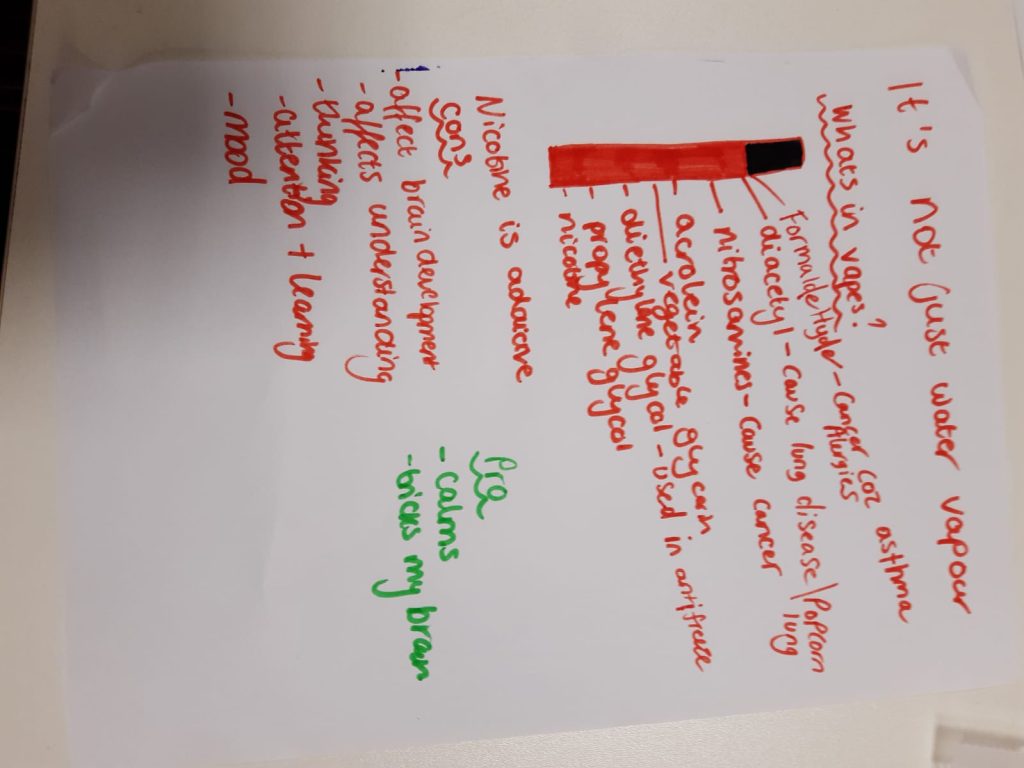 It's not just water vapour
Whats in vapes?
Formaldelhyde - Cancer Co2 asthma
Alurgies
diacetyl - Cause lung disease/Popcorn
lung
nitrosamines - cause cancer
acrolein
vegetable glycerin
diethyline glycol - used in antifreeze
propylene glycol
nicotine
Nicotine is addictive
cons
- affect brain develpment
- affects understanding
- thinking
- attention + learning
- mood
Pro
- calms
- tricks my brain